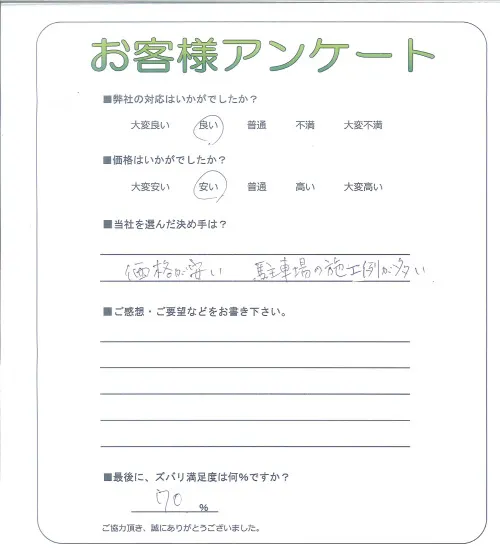 お客様アンケート
■弊社の対応はいかがでしたか？
大変良い 良い 普通 不満 大変不満
■価格はいかがでしたか？
大変安い 安い 普通 高い 大変高い
■当社を選んだ決め手は？
価格が安い 駐車場の施工例が多い
■ご感想・ご要望などをお書き下さい。
■最後に、ズバリ満足度は何％ですか？
70 ％
ご協力頂き、誠にありがとうございました。